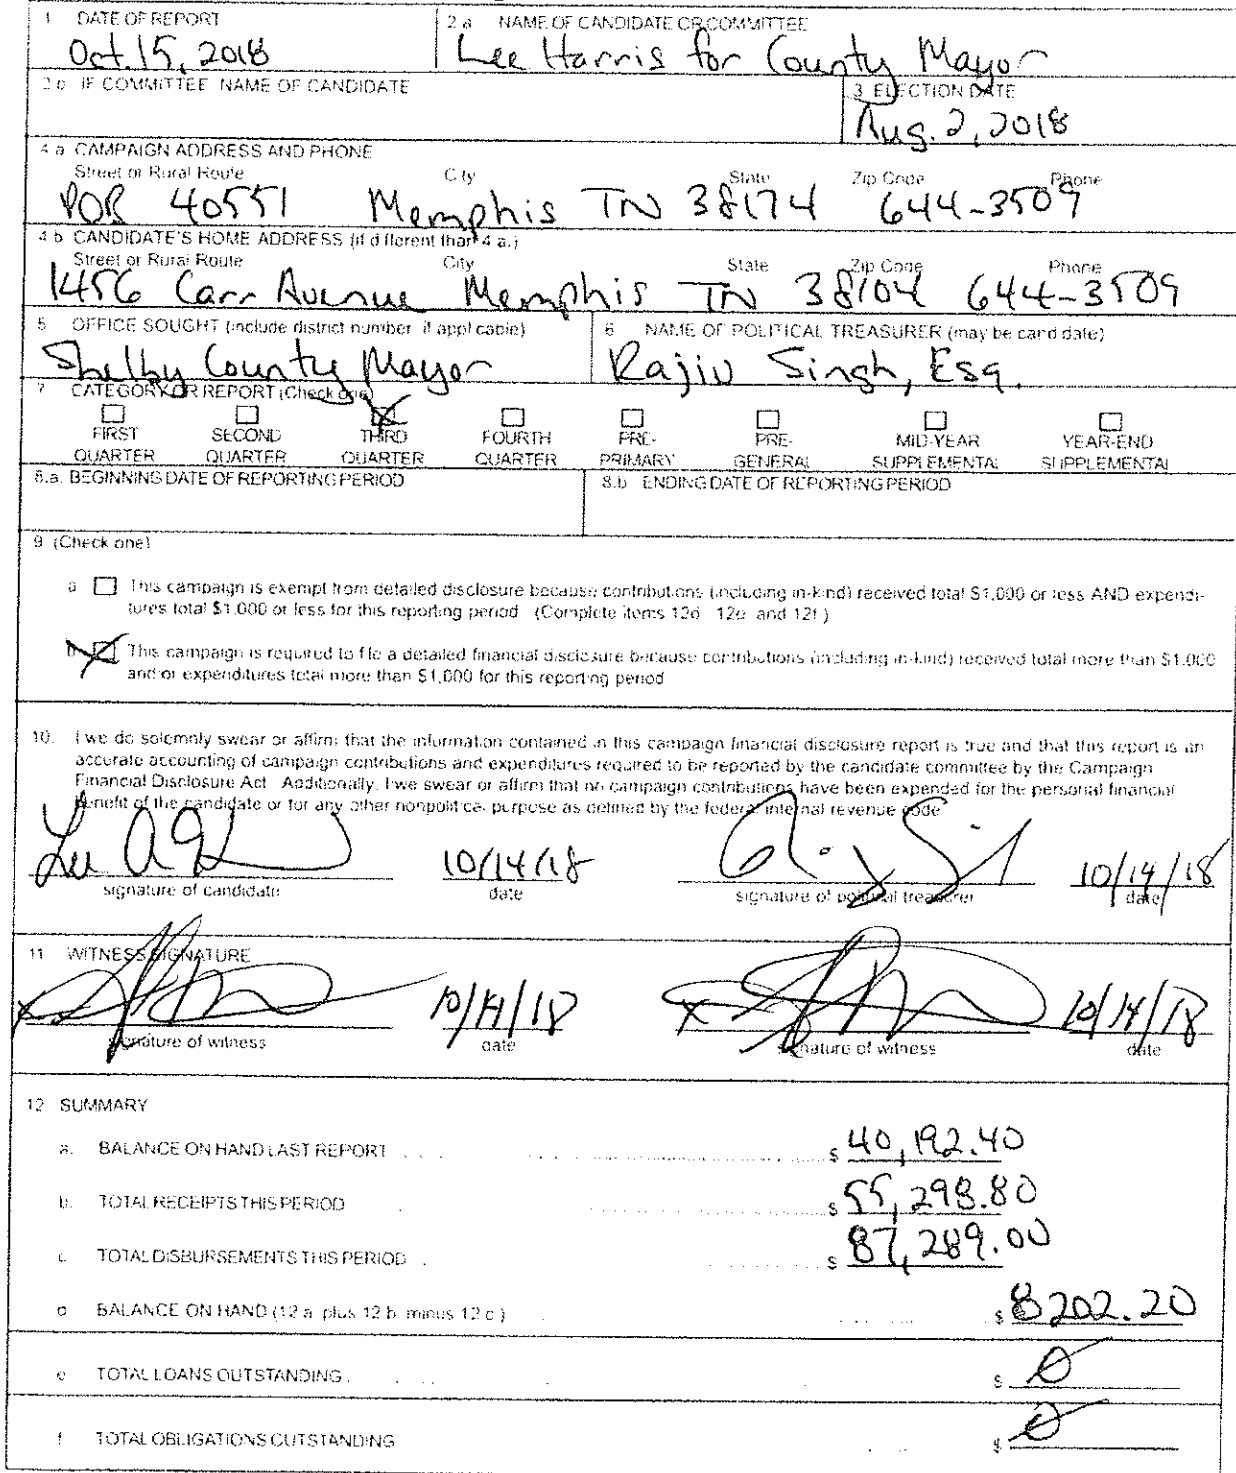 1 DATE OF REPORT
2 a NAME OF CANDIDATE OR COMMITTEE
Oct. 15, 2018
Lee Harris for County Mayor
2 b IF COMMITTEE NAME OF CANDIDATE
3 ELECTION DATE
Aug. 2, 2018
4 a CAMPAIGN ADDRESS AND PHONE
Street or Rural Route City State Zip Code Phone
POB 40551 Memphis TN 38174 644-3509
4 b CANDIDATE'S HOME ADDRESS (if different than 4 a.)
Street or Rural Route City State Zip Code Phone
1456 Carr Avenue Memphis TN 38104 644-3509
5 OFFICE SOUGHT (include district number if applicable)
6 NAME OF POLITICAL TREASURER (may be candidate)
Shelby County Mayor
Rajiv Singh, Esq.
7 CATEGORY OR REPORT (Check one)
FIRST QUARTER
SECOND QUARTER
THIRD QUARTER
FOURTH QUARTER
PRE-PRIMARY
PRE-GENERAL
MID-YEAR SUPPLEMENTAL
YEAR-END SUPPLEMENTAL
8.a. BEGINNING DATE OF REPORTING PERIOD
8.b ENDING DATE OF REPORTING PERIOD
9 (Check one)
a This campaign is exempt from detailed disclosure because contributions (including in-kind) received total $1,000 or less AND expendi-
tures total $1,000 or less for this reporting period (Complete items 12d 12e and 12f)
b This campaign is required to file a detailed financial disclosure because contributions (including in-kind) received total more than $1,000
and or expenditures total more than $1,000 for this reporting period
10. I we do solemnly swear or affirm that the information contained in this campaign financial disclosure report is true and that this report is an
accurate accounting of campaign contributions and expenditures required to be reported by the candidate committee by the Campaign
Financial Disclosure Act Additionally, I we swear or affirm that no campaign contributions have been expended for the personal financial
benefit of the candidate or for any other nonpolitical purpose as defined by the federal internal revenue code
10/14/18 10/14/18
signature of candidate date signature of political treasurer date
11 WITNESS SIGNATURE
X 10/14/18 X 10/14/18
signature of witness date signature of witness date
12 SUMMARY
a. BALANCE ON HAND LAST REPORT $ 40,192.40
b. TOTAL RECEIPTS THIS PERIOD $ 55,298.80
c. TOTAL DISBURSEMENTS THIS PERIOD $ 87,289.00
d BALANCE ON HAND (12 a plus 12 b minus 12 c) $ 8202.20
e TOTAL LOANS OUTSTANDING $ 0
f TOTAL OBLIGATIONS OUTSTANDING $ 0